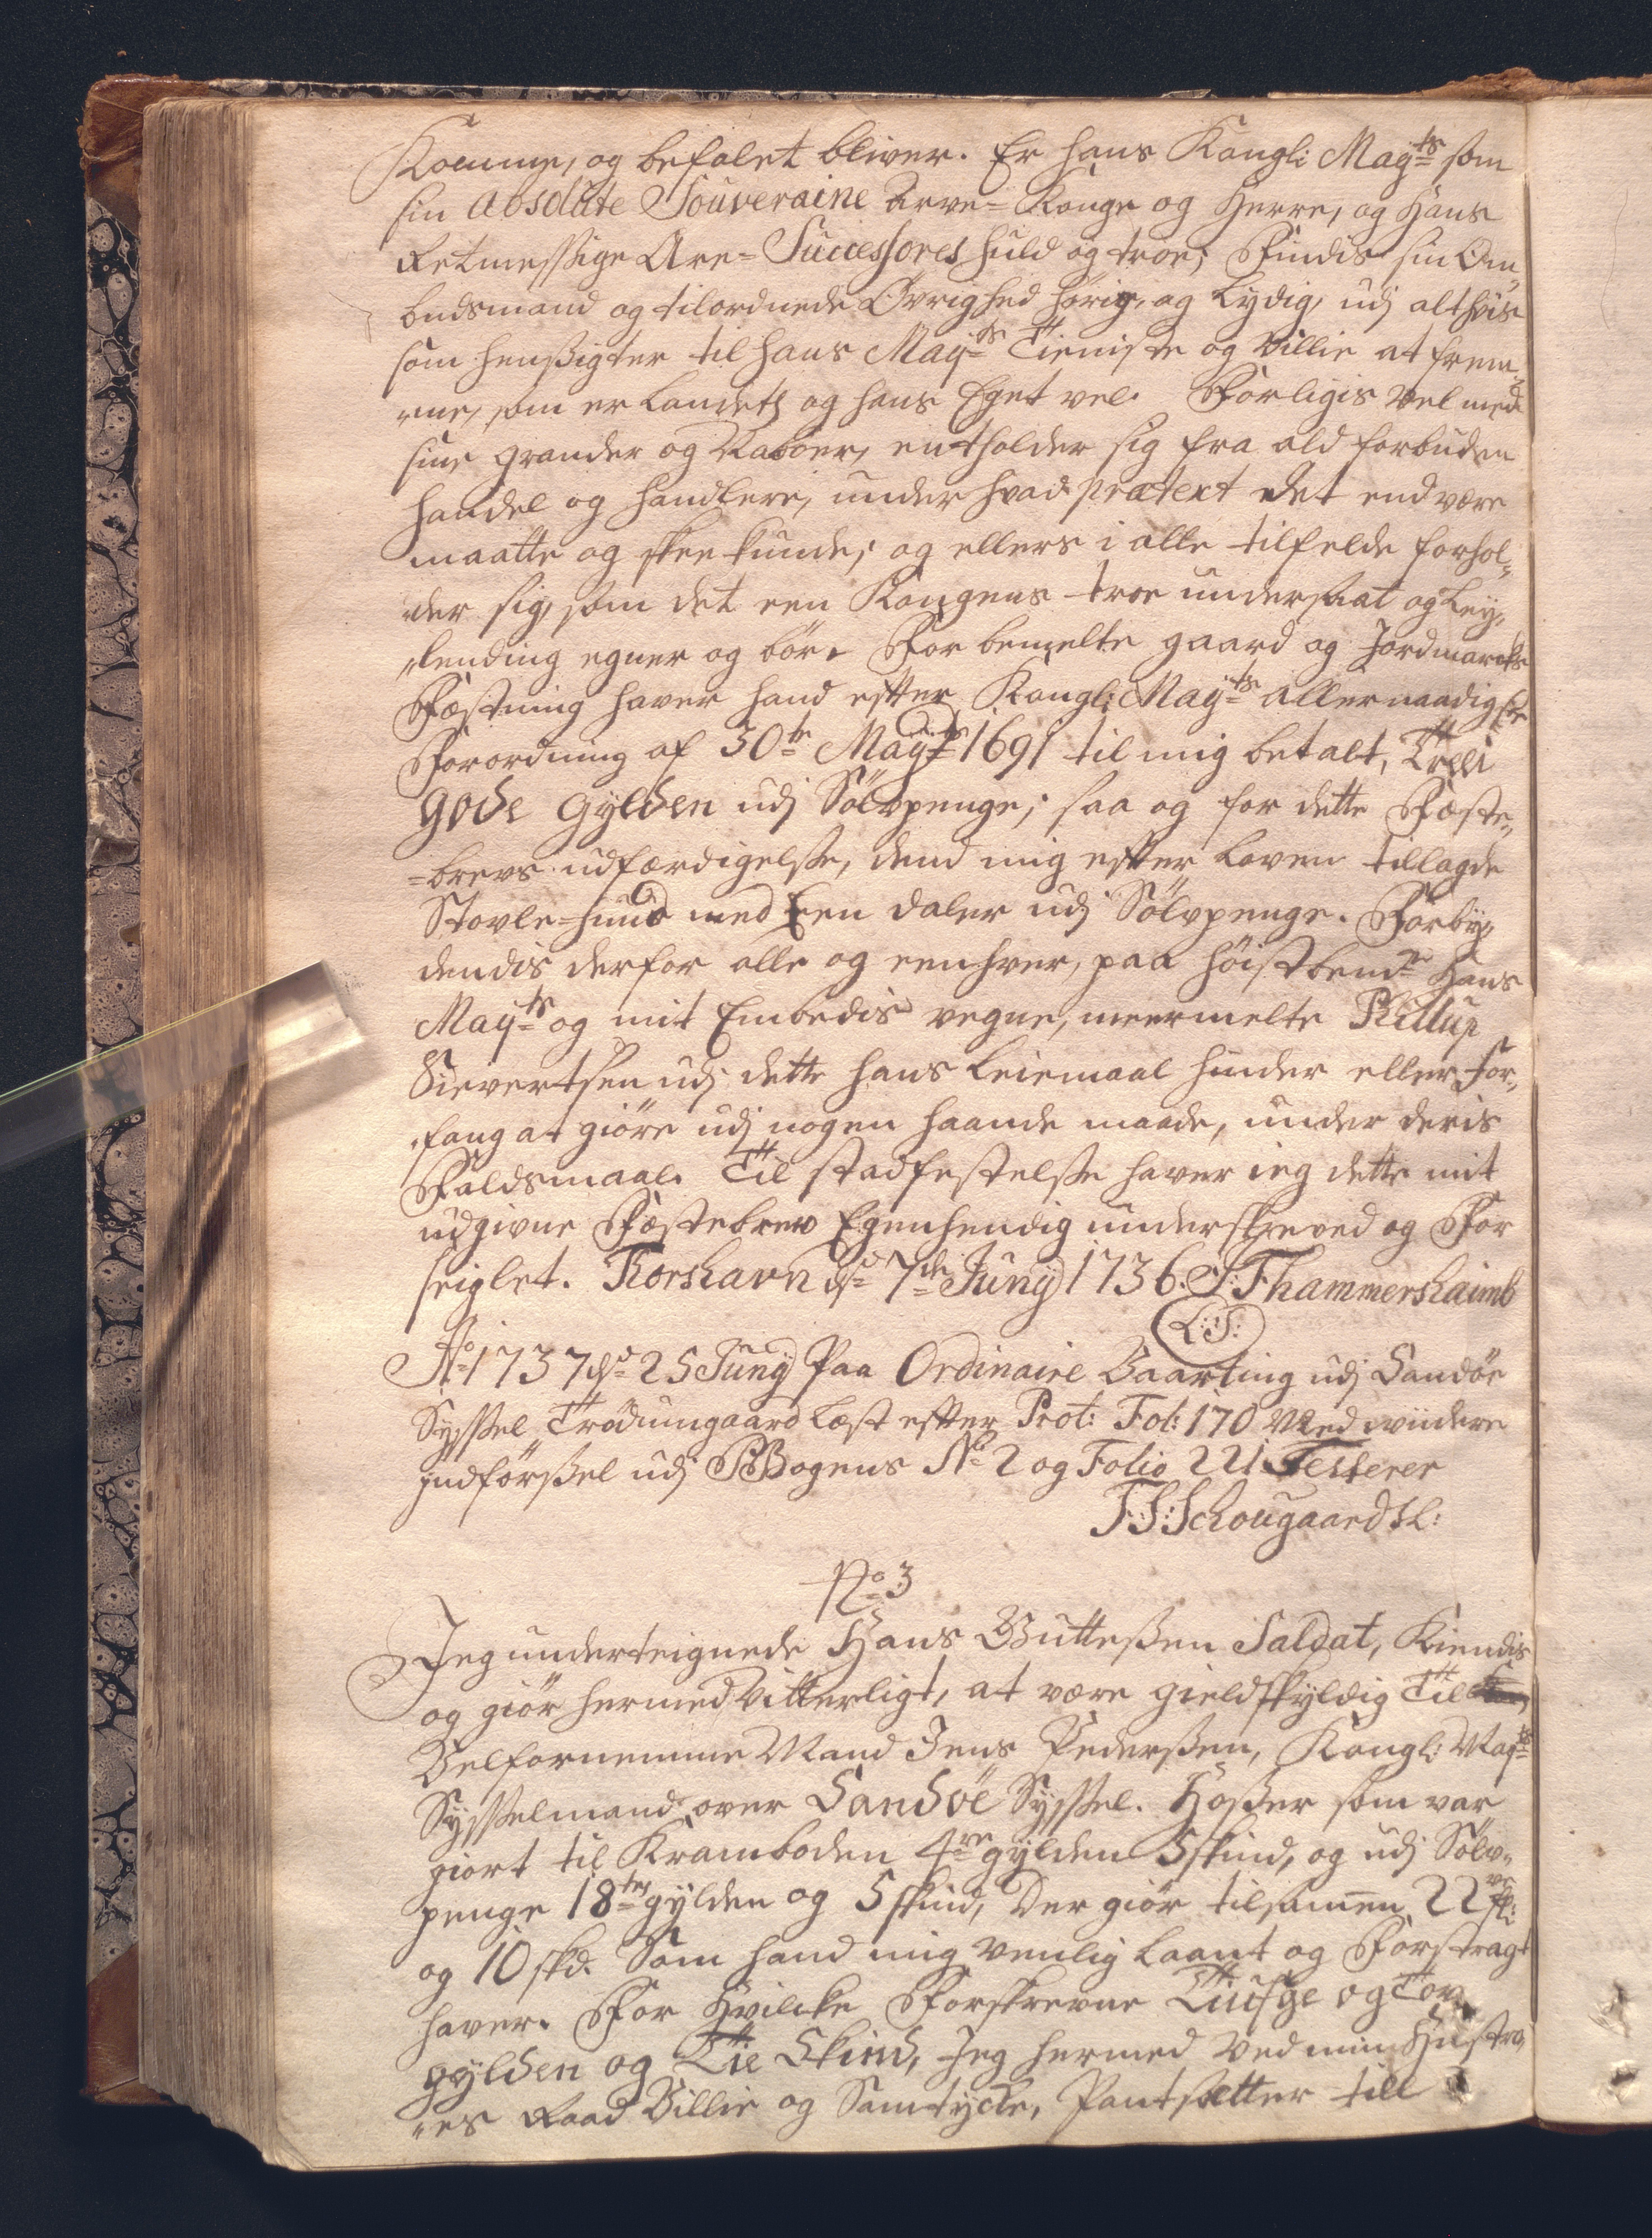 Komme, og befalet bliver. Er hans Kongl: May:ts som
sin absolute Souveraine Arve-Konge og Herre, og Hans
Retmessige Are-Successores huld og troe; Findis sin Om„
budsmand og tilordnede Øvrighed hørig, og Lydig, udj alt hvis
som hensigter til hans May:ts Tieniste og Villie at frem„
me, som er Landets og hans Eget vel. Forligis vel med
sine grander og Naboer, entholder sig fra ald forbuden
handel og handlere, under hvad prætext det end være
maatte og skee kunde; og ellers i alle tilfelde forhol„
der sig, som det een Kongens troe undersaat og Ley„
lending egner og bør. For bemelte gaard og Jordmarcks
Fæstning haver hand efter Kongl: May:ts allernaadigste
Forordning af 30te Maÿ 1691 til mig betalt, Trei
gode gylden udj Sølvpenge; saa og for dette Fæste„
-brevs udfærdigelse, dend mig efter Loven tillagde
Stovle-hund med Een daler udj Sølvpenge. Forbÿ„
dendis derfor alle og eenhver, paa høistbemte Hans
May:ts og mit Embedis vegne, meermelte Phillup
Sievertsen udj dette hans Leiemaal hinder eller For„
fang at giøre udj nogen haande maade, under deris
Faldsmaal. Til stadfestelse haver ieg dette mit
udgivne Fæstebrev Egenhendig underskreved og For
seiglet. Thorshavn d: 7de Junÿ 1736. S: F: hammershaimb
L:S:
Ao 1737 d: 25 Junÿ Paa Ordinaire Vaarting udj Sandøe
Syssel Trødumgaard Læst efter Prot: Fol: 170 Med viidere
indførsel udj PBogens No 2 og Folio 221 Testerer
J: S: Schougaard Sl:
No 3
Jeg underteignede Hans Guttesen Saldat, Kiendis
og giør hermed Vitterligt, at være gieldskyldig Til
Velfornemme Mand Jens Pedersen, Kongl: May:ts
Sysselmand over Sandøe Syssel. Hoser som var
giort til Kramboden 4re gylden 5 skind, og udj Sølv„
penge 18ten gylden og 5 skind, Der giør tilsamen 22 fl:
og 10 skd. Som hand mig venlig Laant og Forstragt
haver. For Hvilcke Forskrevne Tiufge og Tov
gylden og Tie Skind, Jeg hermed Ved min Hustro„
„es Raad Villie og Samtycke, Pantsætter till